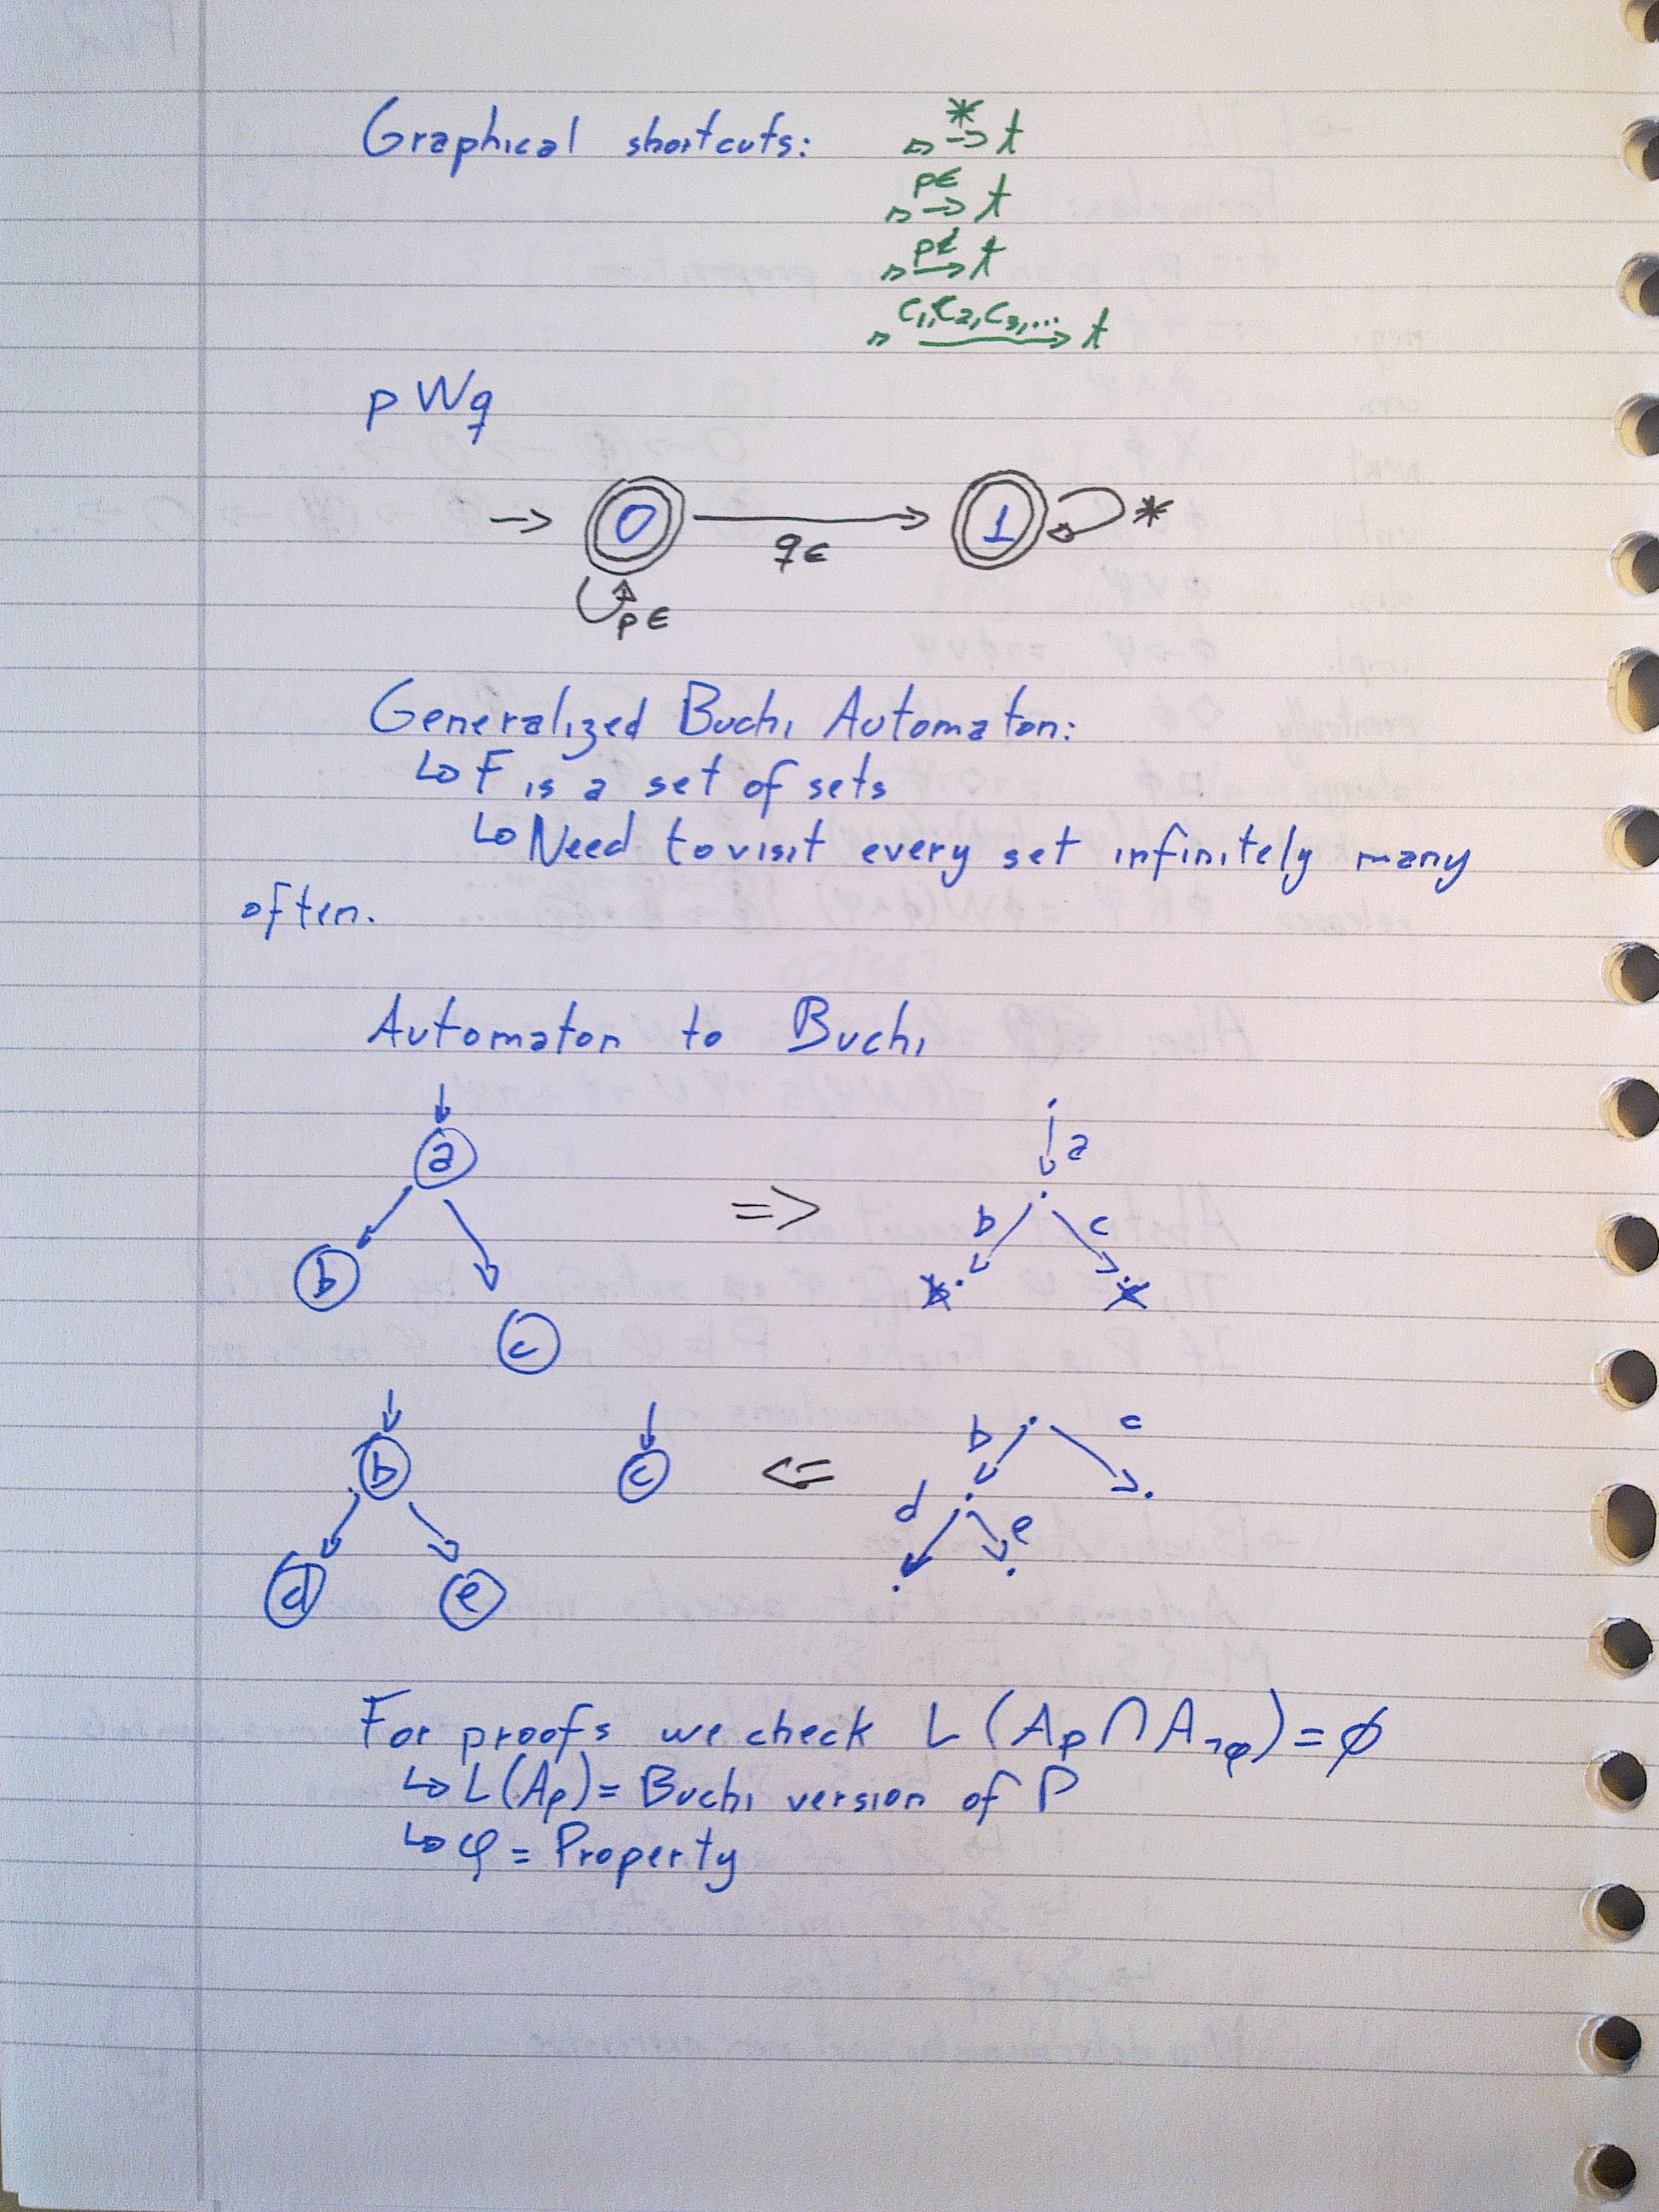 Graphical shortcuts: s *→ t
s p∈→ t
s p∉→ t
s c₁,c₂,c₃,...→ t
p W q
→ 0 → 1 *
q∈
p∈
Generalized Buchi Automaton:
↳ F is a set of sets
↳ Need to visit every set infinitely many
often.
Automaton to Buchi
a a
=>
b c
b
c
b c
b c <=
d e
d e
For proofs we check L(Ap ∩ A¬φ) = ∅
↳ L(Ap) = Buchi version of P
↳ φ = Property